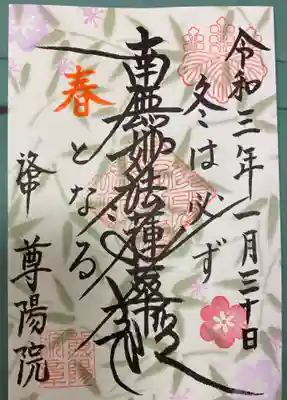 令和三年一月三十日
冬は必ず
南無妙法蓮華経
春
となる
尊陽院